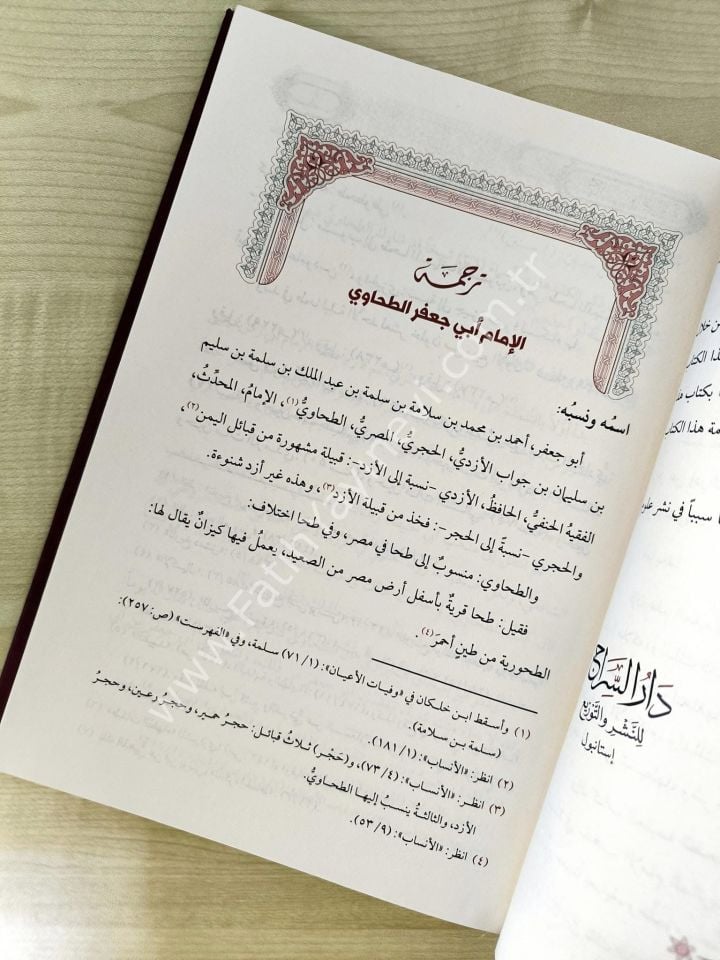 ترجمة
الإمام أبي جعفر الطحاوي
اسمُه ونسبُه:
أبو جعفر، أحمد بن محمد بن سلامة بن سلمة بن عبد الملك بن سلمة بن سليم
بن سليمان بن جواب الأزديُّ، الحجريُّ، المصريُّ، الطحاويُّ(١)، الإمامُ، المحدِّثُ،
الفقيهُ الحنفيُّ، الحافظُ، الأزدي -نسبة إلى الأزد-: قبيلة مشهورة من قبائل اليمن(٢)،
والحجري -نسبةً إلى الحجر-: فخذ من قبيلة الأزد(٣)، وهذه غير أزد شنوءة.
والطحاوي: منسوبٌ إلى طحا في مصر، وفي طحا اختلاف:
فقيل: طحا قريةٌ بأسفل أرض مصر من الصعيد، يعملُ فيها كيزانٌ يقال لها:
الطحورية من طينٍ أحمرَ(٤).
(١) وأسقط ابن خلكان في «وفيات الأعيان»: (٧١/١) سلمة، وفي «الفهرست» (ص: ٢٥٧):
(سلمة بن سلامة).
(٢) انظر: «الأنساب»: (١٨١/١).
(٣) انظر: «الأنساب»: (٧٣/٤)، و(حَجْر) ثلاثُ قبائل: حجرُ حمير، وحجرُ رعين، وحجرُ
الأزد، والثالثةُ ينسبُ إليها الطحاويُّ.
(٤) انظر: «الأنساب»: (٥٣/٩).
هذا الكتا
بكتاب
مة هذا الكتا
سبباً في نشر علو
دَارُ السِّرَاج
لِلنَّشْرِ وَالتَّوزِيْع
إستانبول
www.FatihYayinevi.com.tr